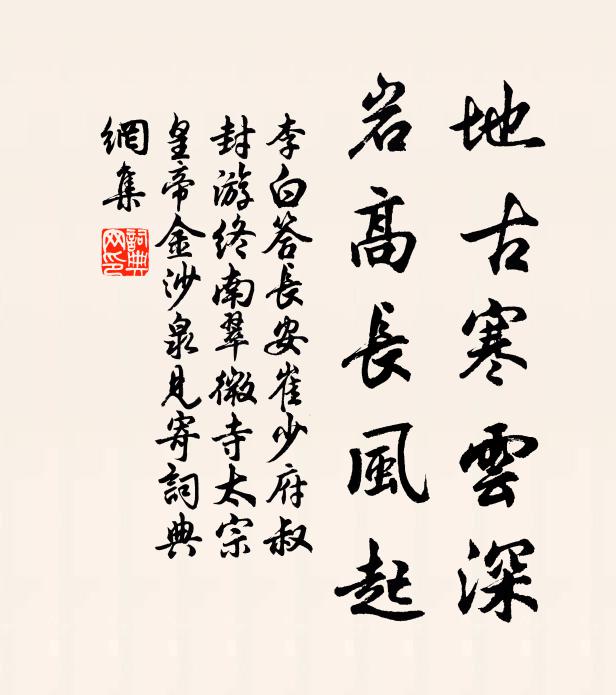 地古寒雲深
岩高長風起
李白答長安崔少府叔
封游終南翠微寺太宗
皇帝金沙泉見寄詞典
網集
詞典網印